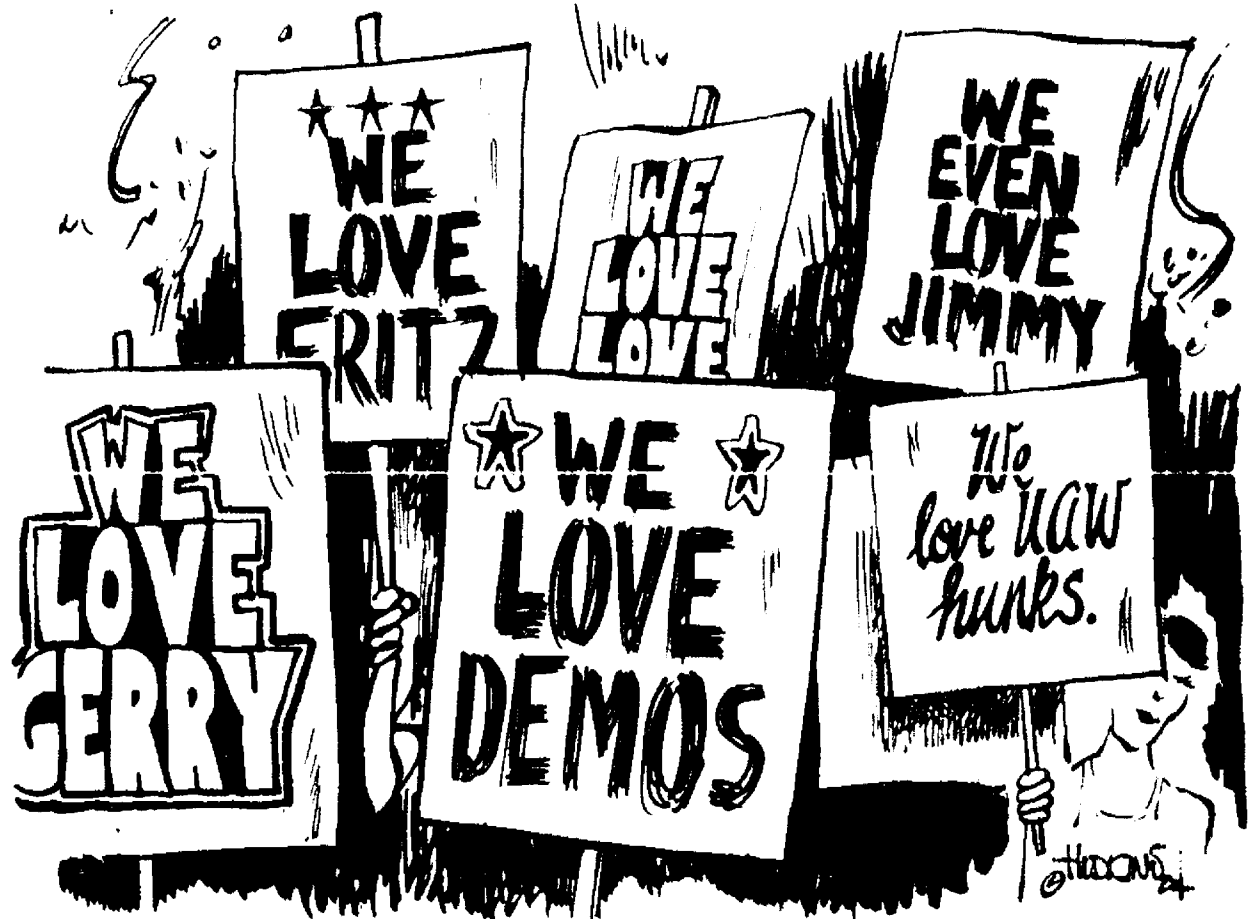 WE
LOVE
FRITZ
WE
LOVE
LOVE
WE
EVEN
LOVE
JIMMY
WE
LOVE
GERRY
WE
LOVE
DEMOS
We
love UAW
hunks.